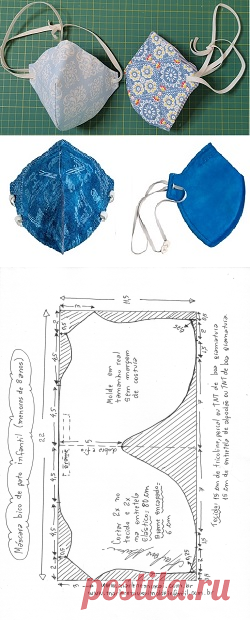 Máscara bico de pato infantil (menores de 8 anos)
22
11,5
Molde em
tamanho real
sem margem
de costura
Cortar 2x no
tecido e 2x
na entretela
Elástico: 80cm
Arame encapado:
6 cm
Tecidos: 15 cm de tricoline, percal ou TNT de boa gramatura
15 cm de entretela de algodão ou TNT de boa gramatura
dobra e fio
4,5
4,5
4,5
4,5
7
7
2
2